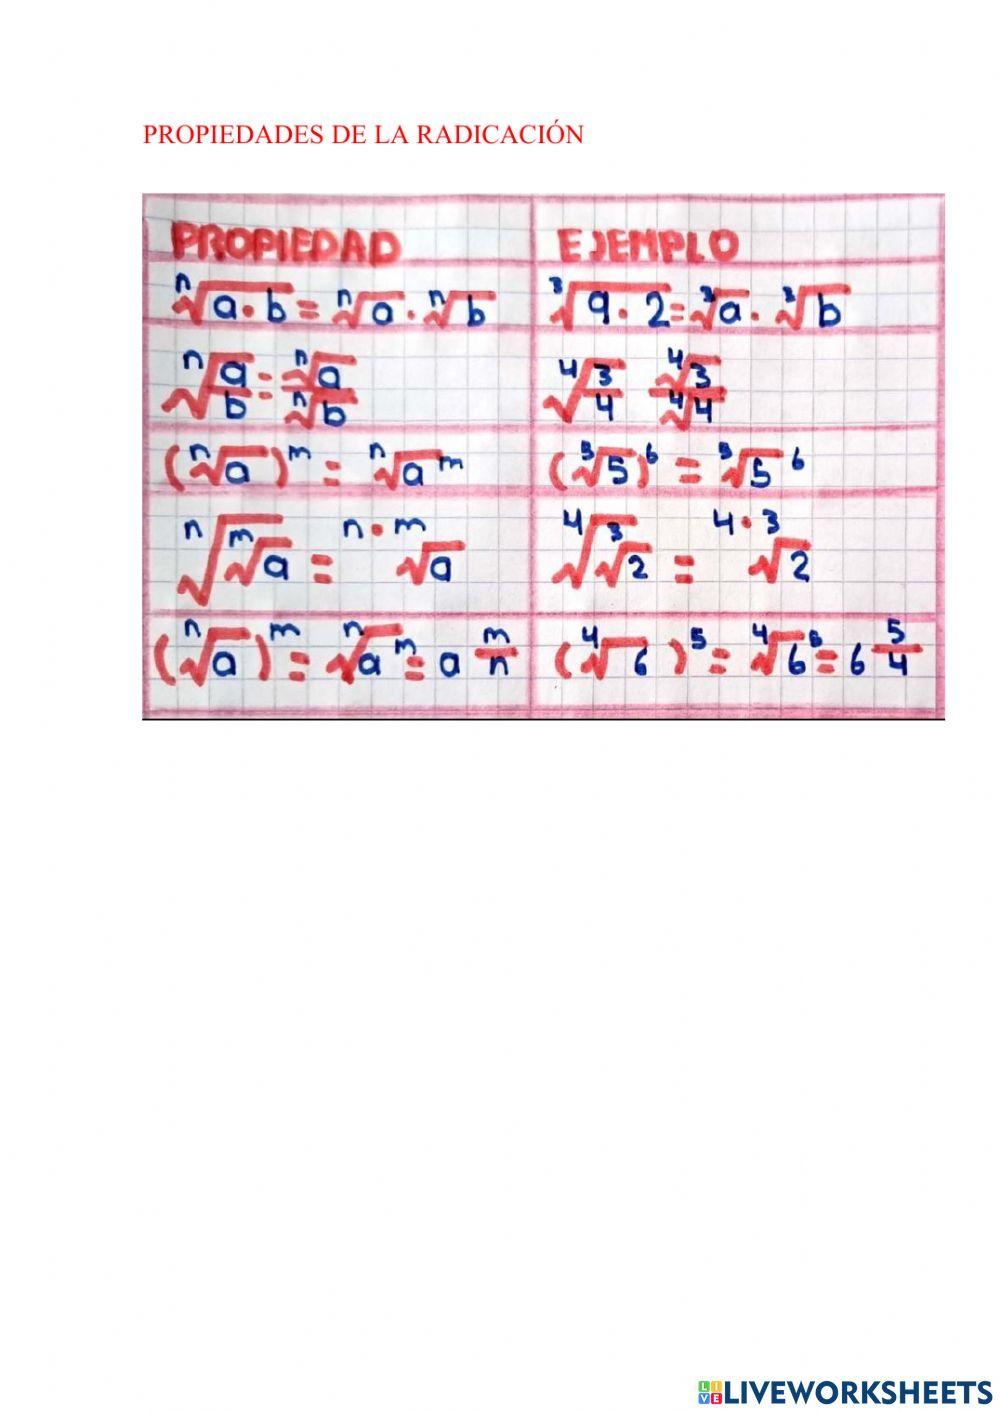 PROPIEDADES DE LA RADICACIÓN
PROPIEDAD EJEMPLO
ⁿ√(a·b) = ⁿ√a · ⁿ√b ³√(9·2) = ³√a · ³√b
ⁿ√(a/b) = ⁿ√a / ⁿ√b ⁴√(3/4) ⁴√3 / ⁴√4
(ⁿ√a)ᵐ = ⁿ√aᵐ (⁵√5)⁶ = ⁵√5⁶
ⁿ√ᵐ√a = ⁿ·ᵐ√a ⁴√³√2 = ⁴·³√2
(ⁿ√a)ᵐ = ⁿ√aᵐ = a m/n (⁴√6)⁵ = ⁴√6⁵ = 6 5/4
LIVEWORKSHEETS